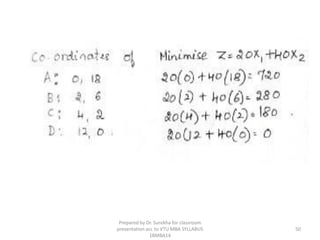 Co-ordinates of Minimise Z=20X₁+40X₂
A: 0, 18 20(0)+40(18)=720
B: 2, 6 20(2)+40(6)=280
C: 4, 2 20(4)+40(2)=180
D: 12, 0 20(12+40(0)=0
Prepared by Dr. Surekha for classroom
presentation acc to VTU MBA SYLLABUS
18MBA14
50